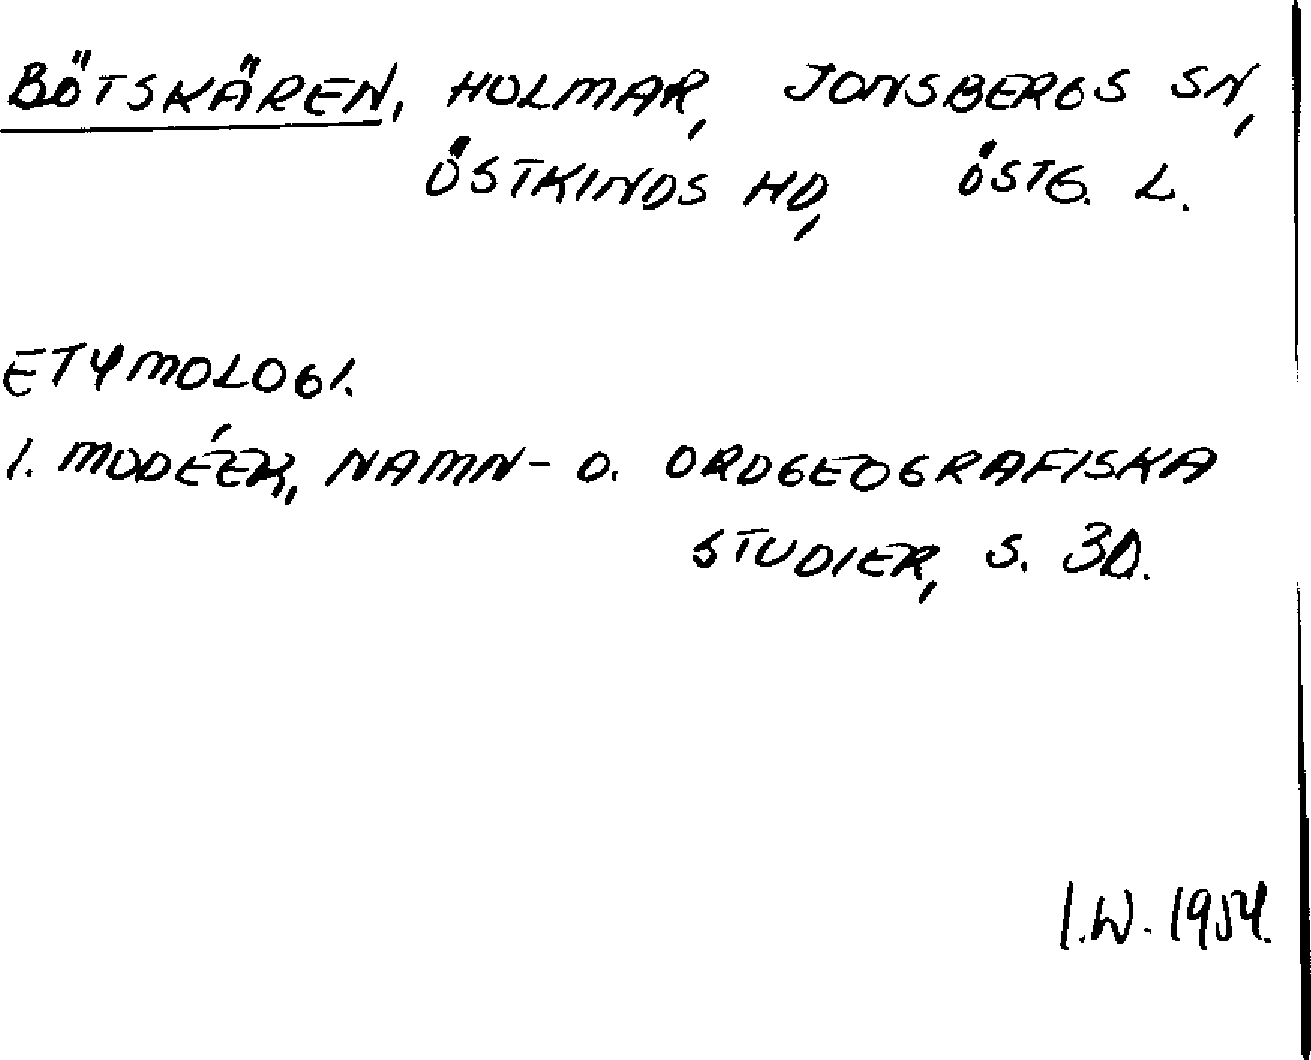 BÖTSKÄREN, HOLMAR, JONSBERGS SN,
ÖSTKINDS HD, ÖSTG. L.
ETYMOLOGI.
I. MODÉER, NAMN- O. ORDGEOGRAFISKA
STUDIER, S. 30.
I.W. 1954.